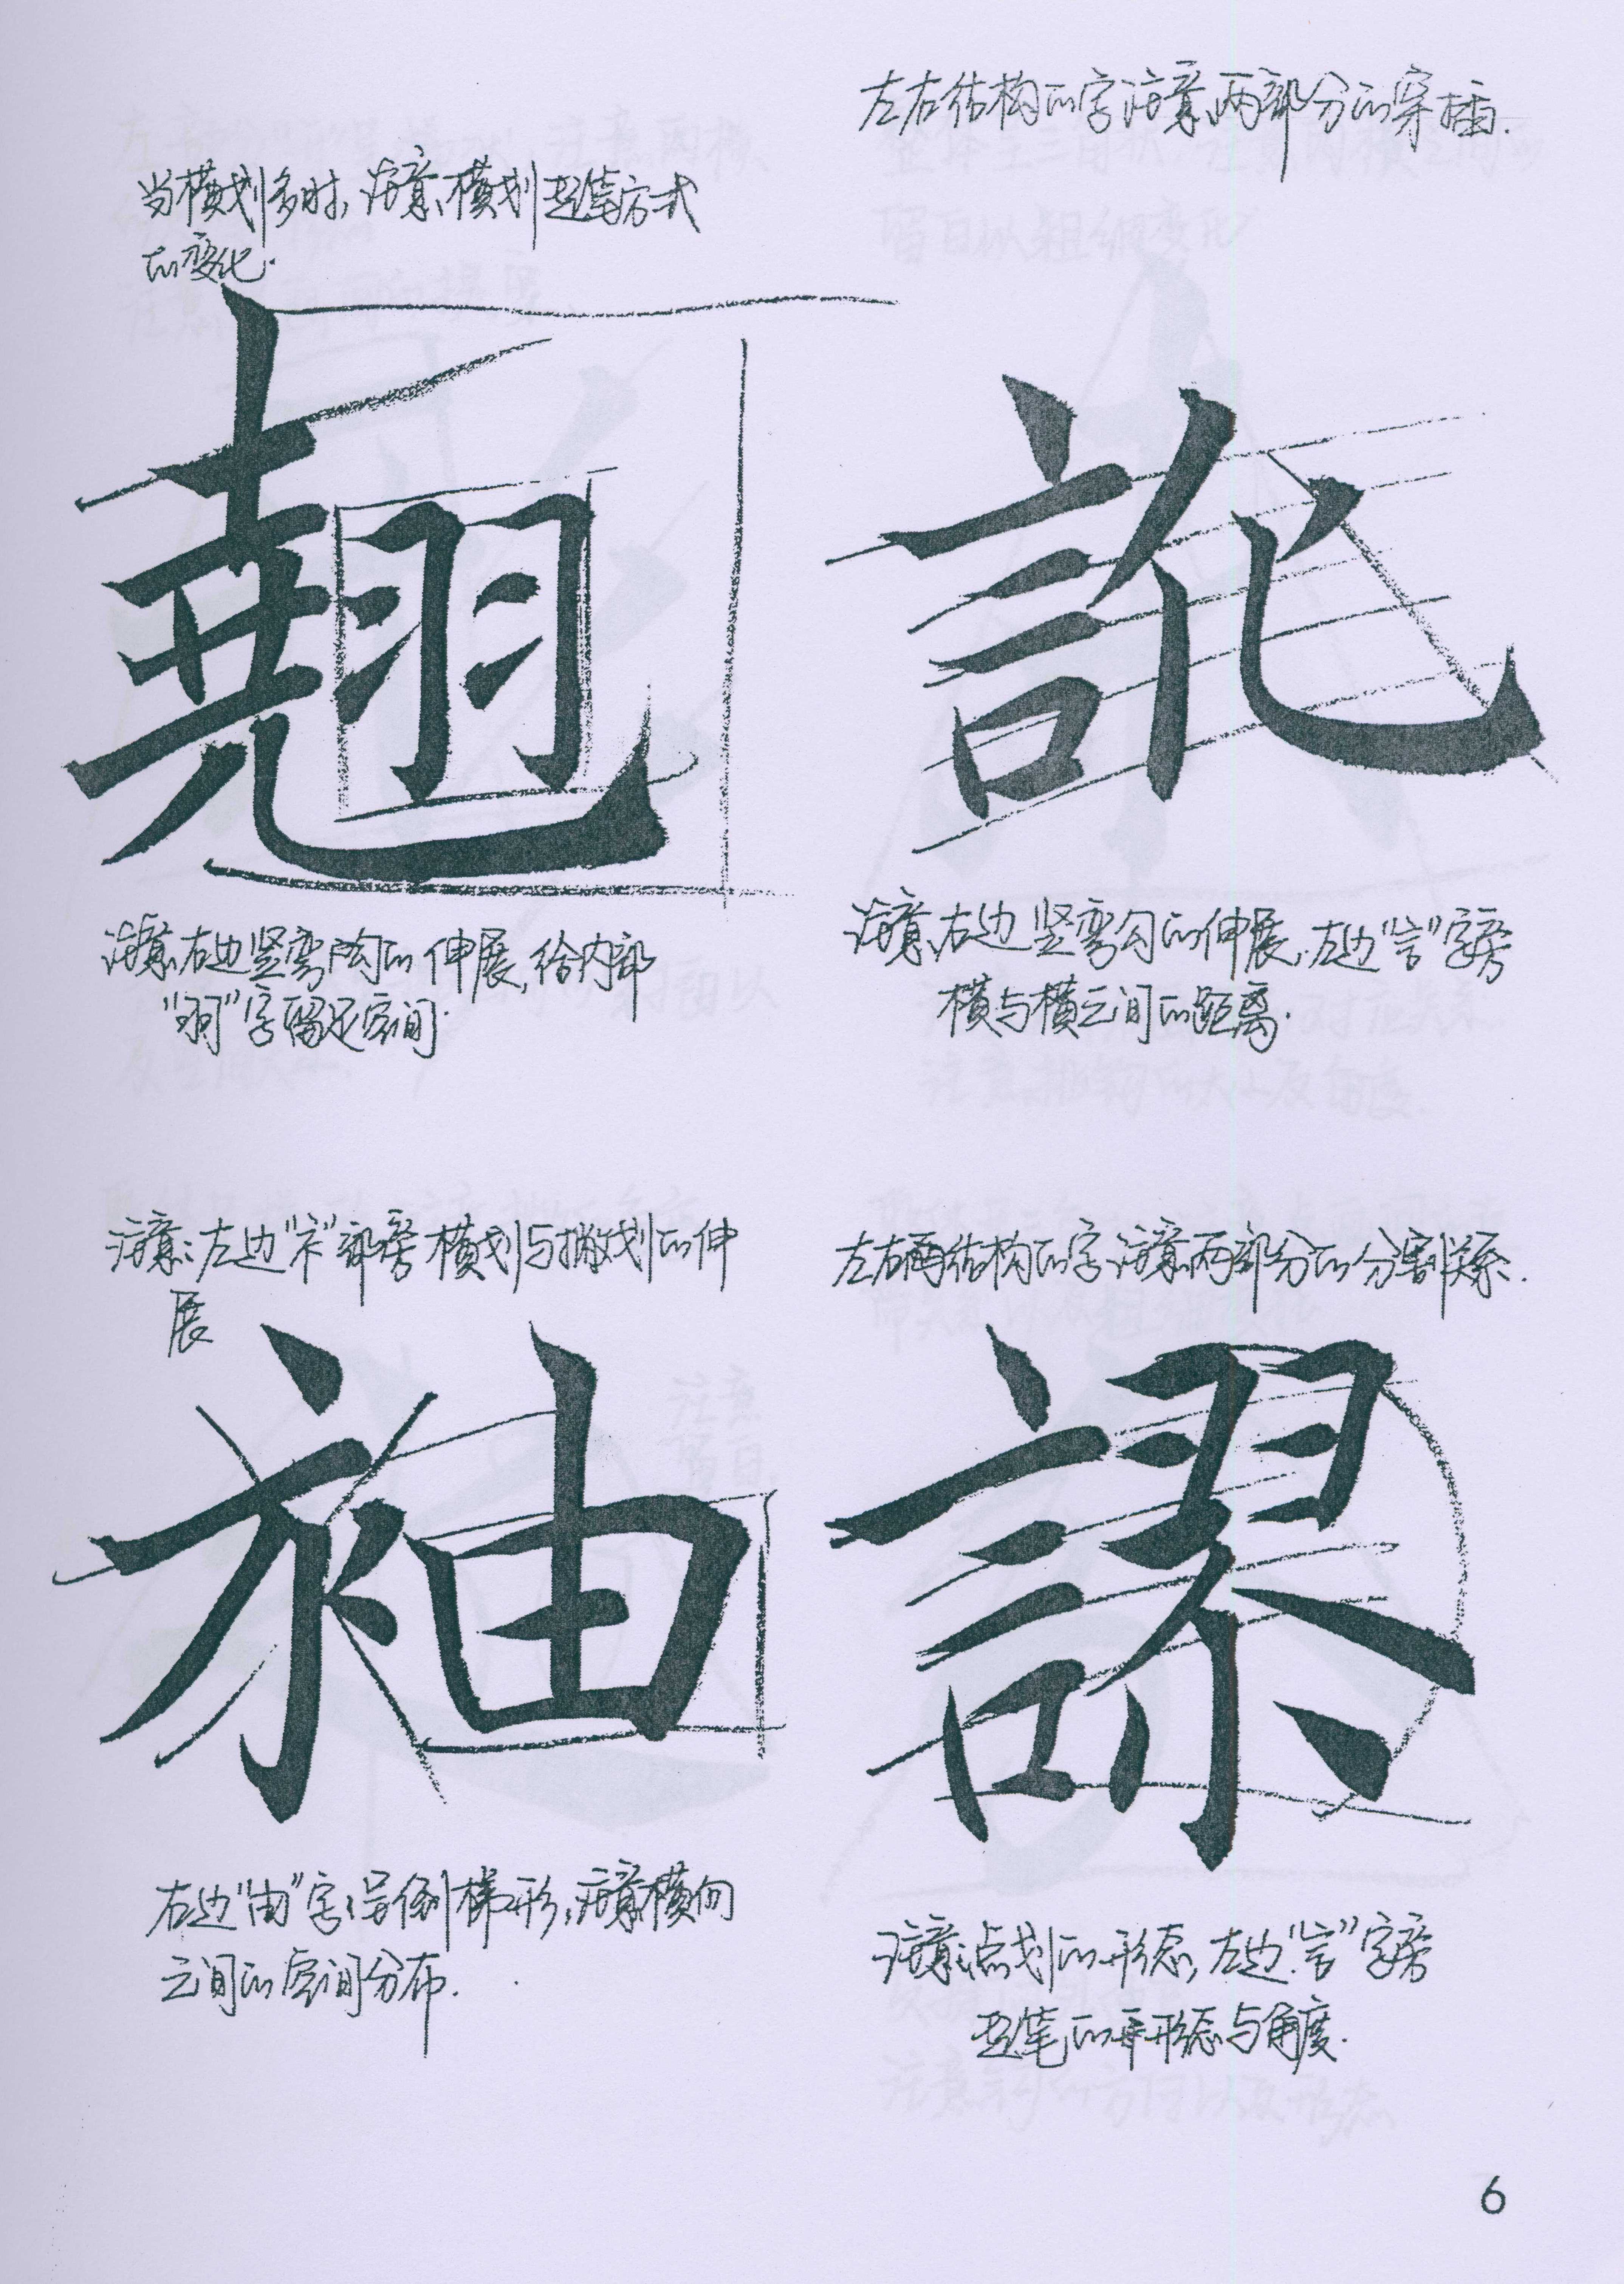 当横划多时,注意横划起笔方式
的变化.
翘
注意右边竖弯钩的伸展,给内部
“羽”字留足空间.
左右结构的字注意两部分的穿插.
訛
注意右边竖弯勾的伸展.左边“言”字旁
横与横之间的距离.
注意:左边“衤”部旁横划与撇划的伸
展
袖
右边“由”字呈倒梯形,注意横向
之间的空间分布.
左右两结构的字注意两部分的分割关系.
謬
注意点划的形态,左边“言”字旁
起笔的形态与角度.
6